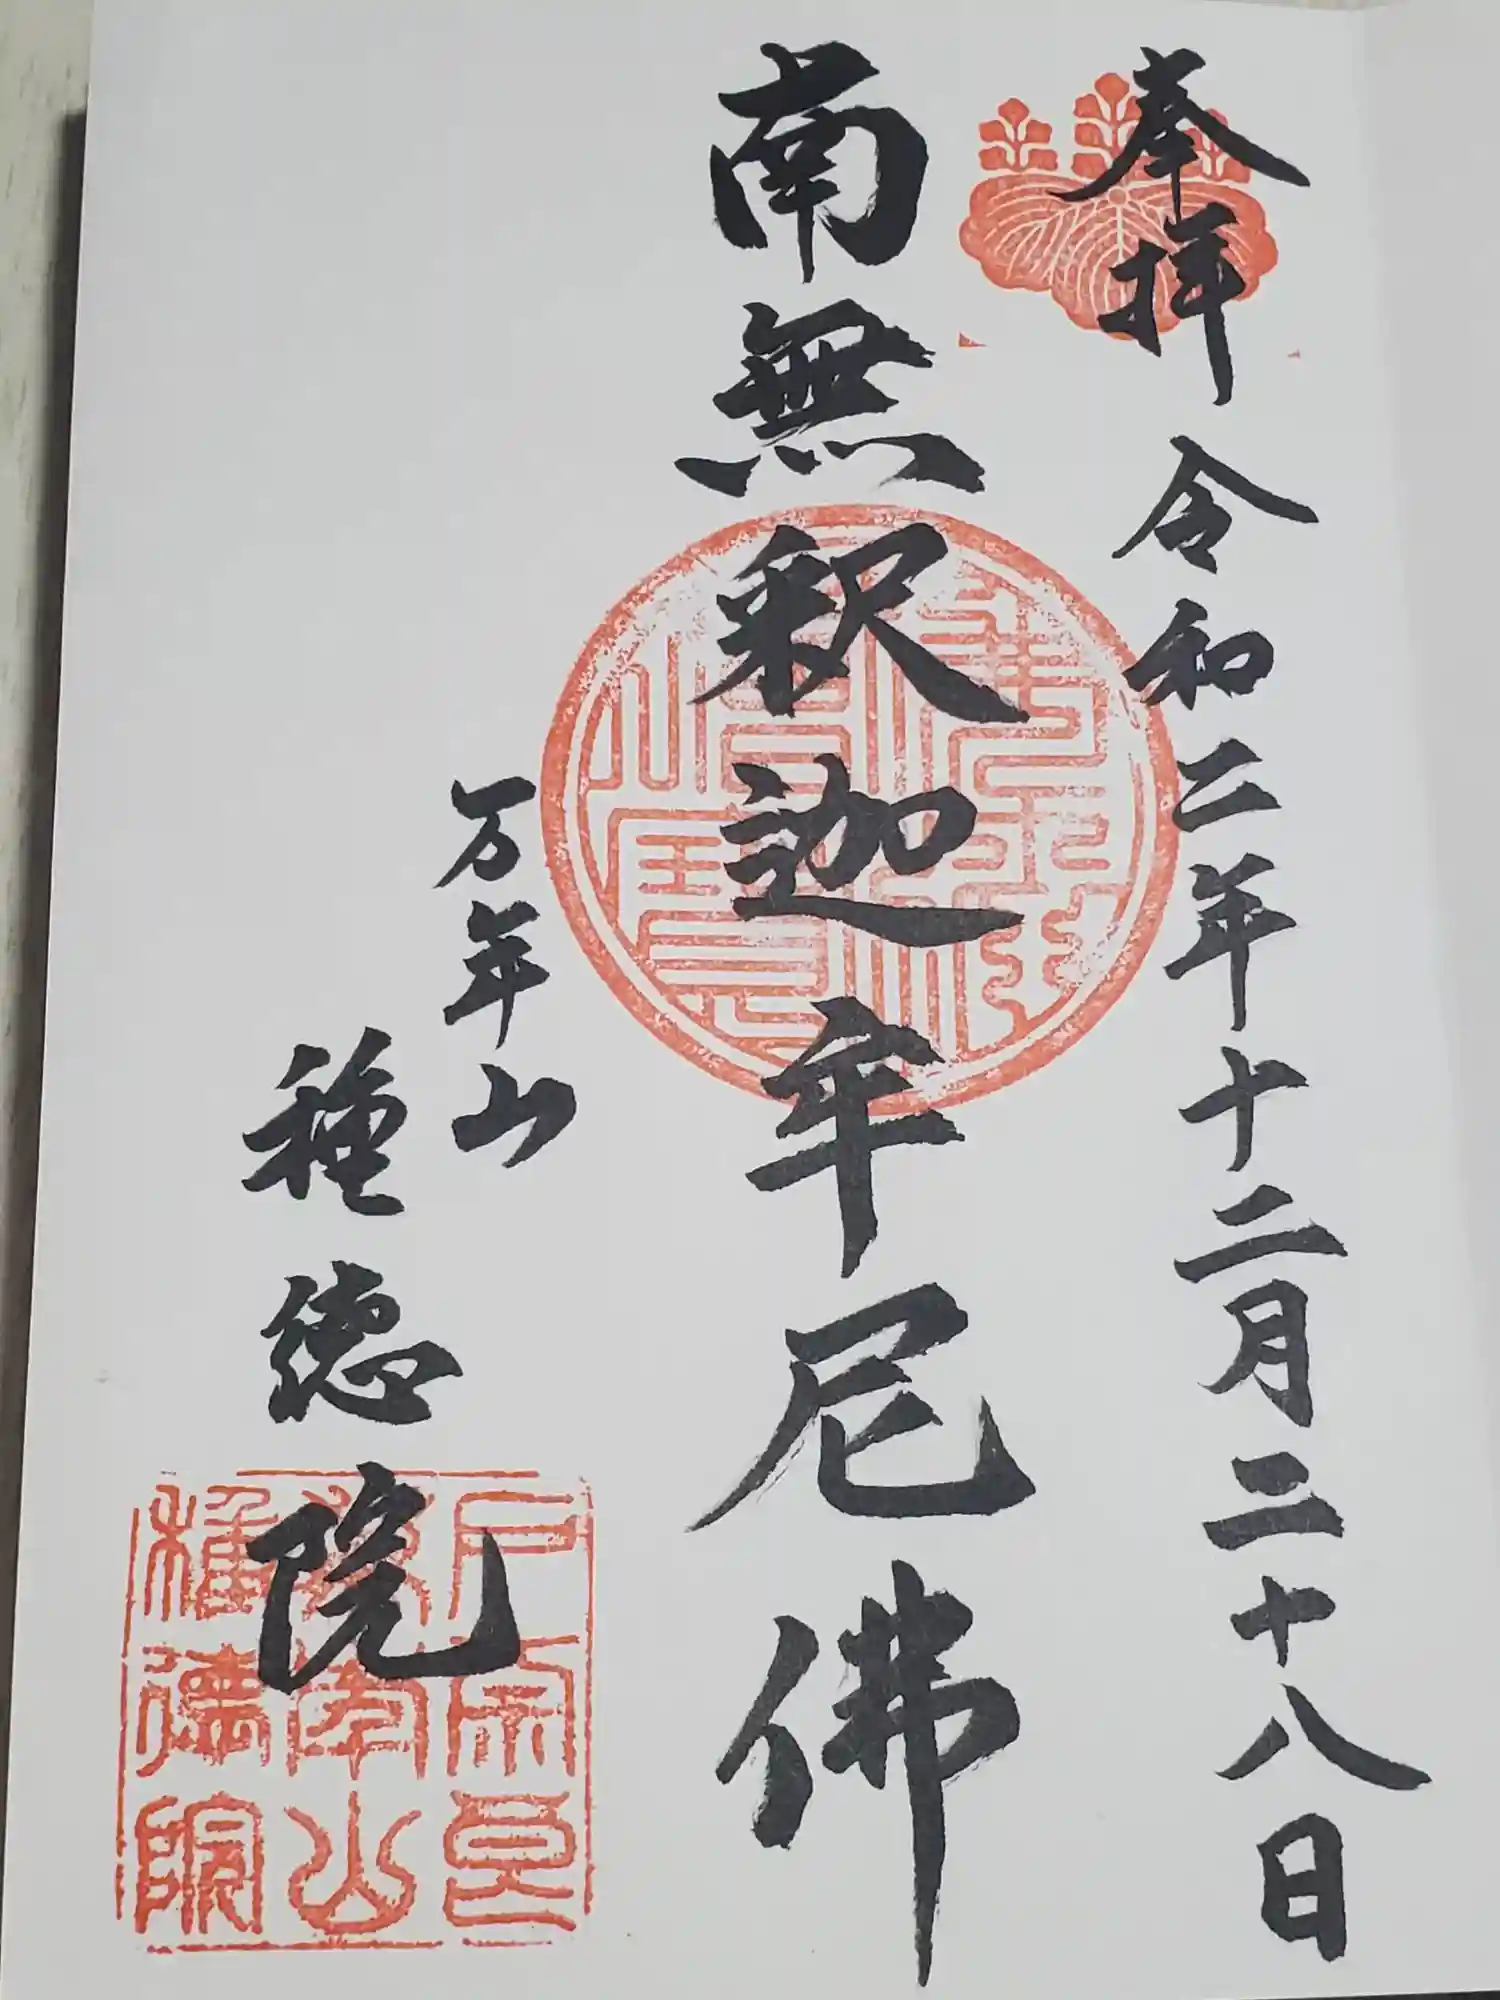 奉拝 令和二年十二月二十八日
南無釈迦牟尼佛
万年山
種徳院
種徳院